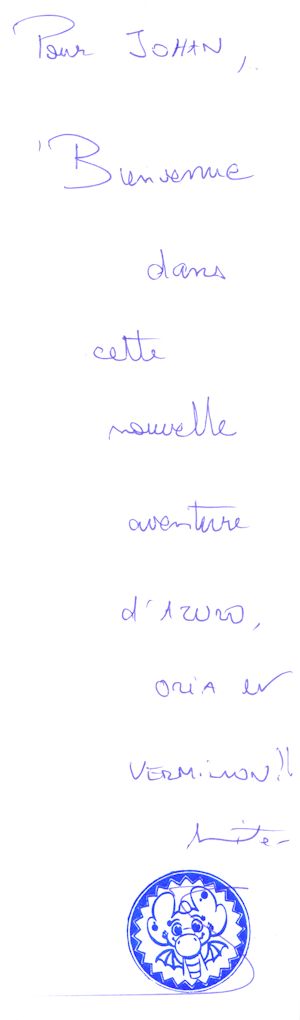 Pour JOHAN,
Bienvenue
dans
cette
nouvelle
aventure
d'AZURO,
ORIA et
VERMILLON!!